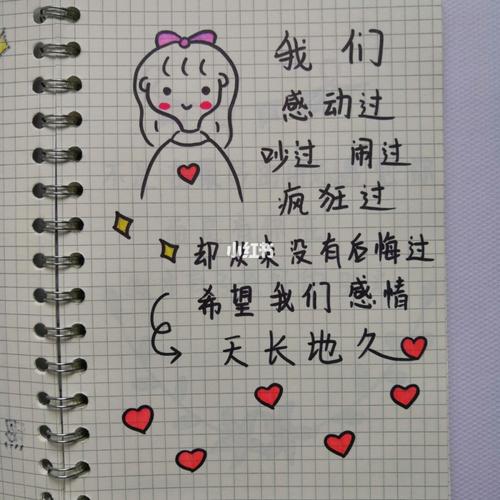 我们
感动过
吵过 闹过
疯狂过
却从来没有后悔过
希望我们感情
天长地久
小红书